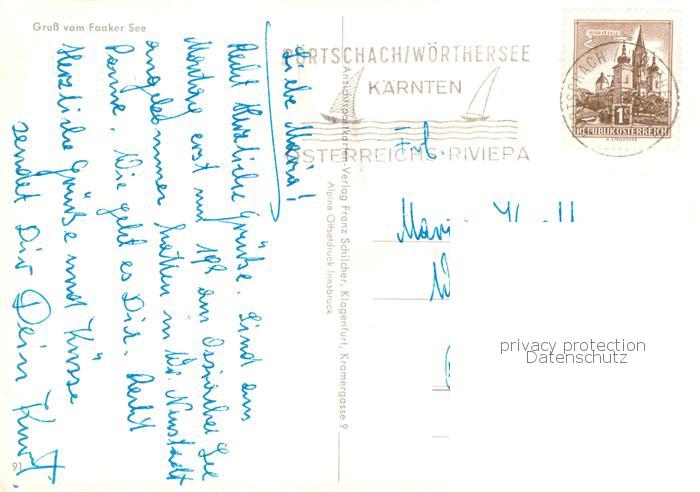 Gruß vom Faaker See
Liebe Maria!
Recht Herzliche Grüße. Sind am
Montag erst um 19h am Ossiacher See
angekommen hatten in Wr. Neustadt
Panne. Wie geht es Dir. Recht
Herzliche Grüße und Küsse
sendet Dir Dein Kurt.
91
Ansichtspostkarten-Verlag Franz Schilcher, Klagenfurt, Kramergasse 9
Alpine Offsetdruck Innsbruck
PÖRTSCHACH/WÖRTHERSEE
KÄRNTEN
ÖSTERREICHS·RIVIERA
MARIAZELL
1S
REPUBLIK ÖSTERREICH
Frl.
privacy protection
Datenschutz